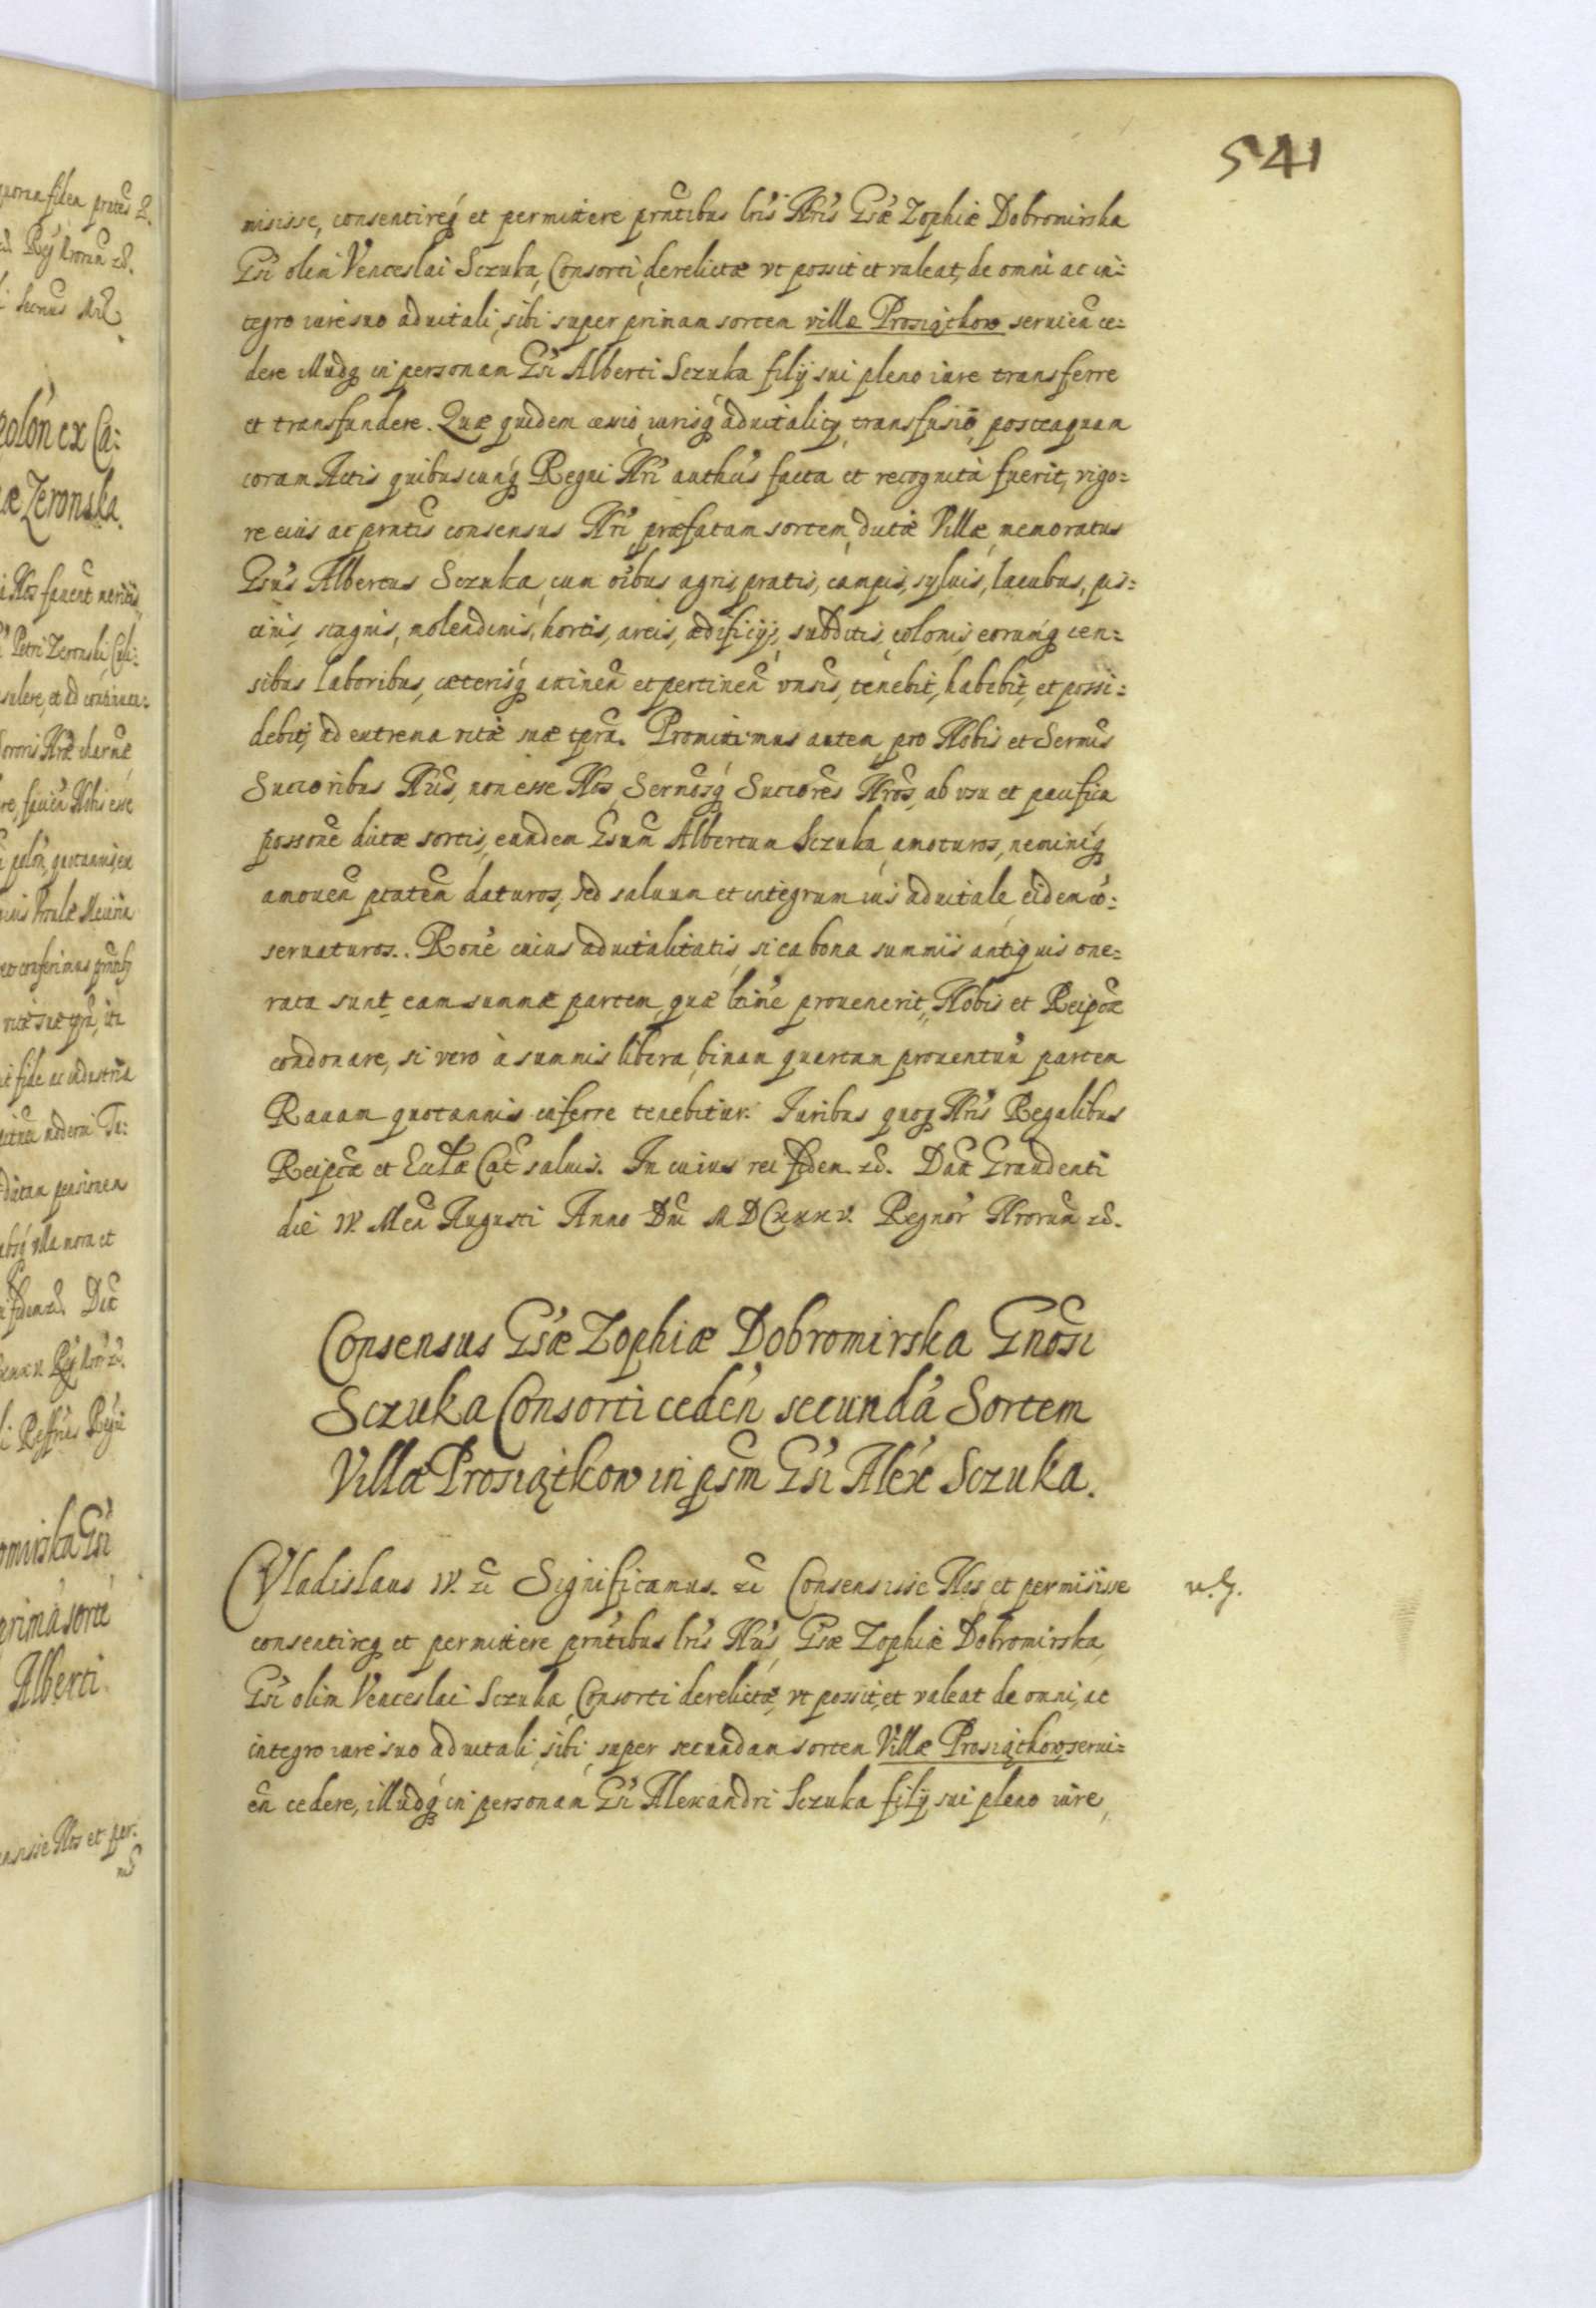 541
misisse, consentireq́ et permittere prñtibus lris Nris Gsæ Zophiæ Dobromirska
Gsi olim Venceslai Sczuka, Consorti derelictæ vt possit et valeat, de omni ac in=
tegro iure suo aduitali, sibi super primam sortem villæ Prosiątkow seruien ce=
dere illudq́ in personam Gsi Alberti Sczuka filij sui pleno iure transferre
et transfundere. Quæ quidem cessio, iurisq́ aduitalitis, transfusio posteaquam
coram Actis quibuscunq́ Regni Nri authcis facta et recognita fuerit, vigo=
re eius ac prntis consensus Nri præfatam sortem dictæ Villæ memoratus
Gsus Albertus Sczuka cum oibus agris, pratis, campis, syluis, lacubus, pis=
cinis, stagnis, molendinis, hortis, areis, ædificijs, subditis, colonis eorumq́ cen=
sibus laboribus, cæterisq́ attinen et pertinen vnsis, tenebit, habebit, et possi=
debit, ad extrema vitæ suæ tpra. Promittimus autem pro Nobis et Sermis
Succoribus Nris, non esse Nos, Sermosq́ Succores Nros, ab vsu et pacifica
possone dictæ sortis, eundem Gsum Albertum Sczuka amoturos, neminiq́
amouen ptatem daturos, sed saluum et integrum ius aduitale eidem cõ=
seruaturos. Rone cuius aduitalitatis si ea bona summis antiquis one=
rata sunt eam summæ partem, quæ ltime prouenerit, Nobis et Reipcæ
condonare, si vero à summis libera, binam quartam prouentuũ partem
Rauam quotannis inferre tenebitur. Iuribus quoq́ Nris Regalibus
Reipcæ et Ecclæ Cat saluis. In cuius rei fidem. ec. Dat Graudenti
die IV. Men Augusti Anno Dni MDCXXXV. Regnor Nrorum ec.
Consensus Gsæ Zophiæ Dobromirska Gnosi
Sczuka Consorti ceden secundã Sortem
Villæ Prosiątkow in psm Gsi Alex Sczuka.
Vladislaus IV. ec Significamus. ec Consensisse Nos et permisisse
consentireq́ et permittere prntibus lris Nris, Gsæ Zophiæ Dobromirska
Gsi olim Venceslai Sczuka Consorti derelictæ, vt possit, et valeat de omni, ac
integro iure suo aduitali, sibi super secundam sortem Villæ Prosiątkow serui=
en cedere, illudq́ in personam Gsi Alexandri Sczuka filij sui pleno iure